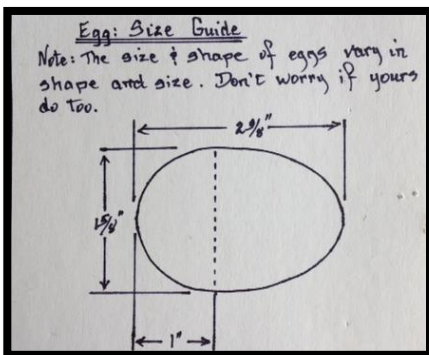 Egg: Size Guide
Note: The size & shape of eggs vary in
shape and size. Don't worry if yours
do too.
2 3/8"
1 5/8"
1"